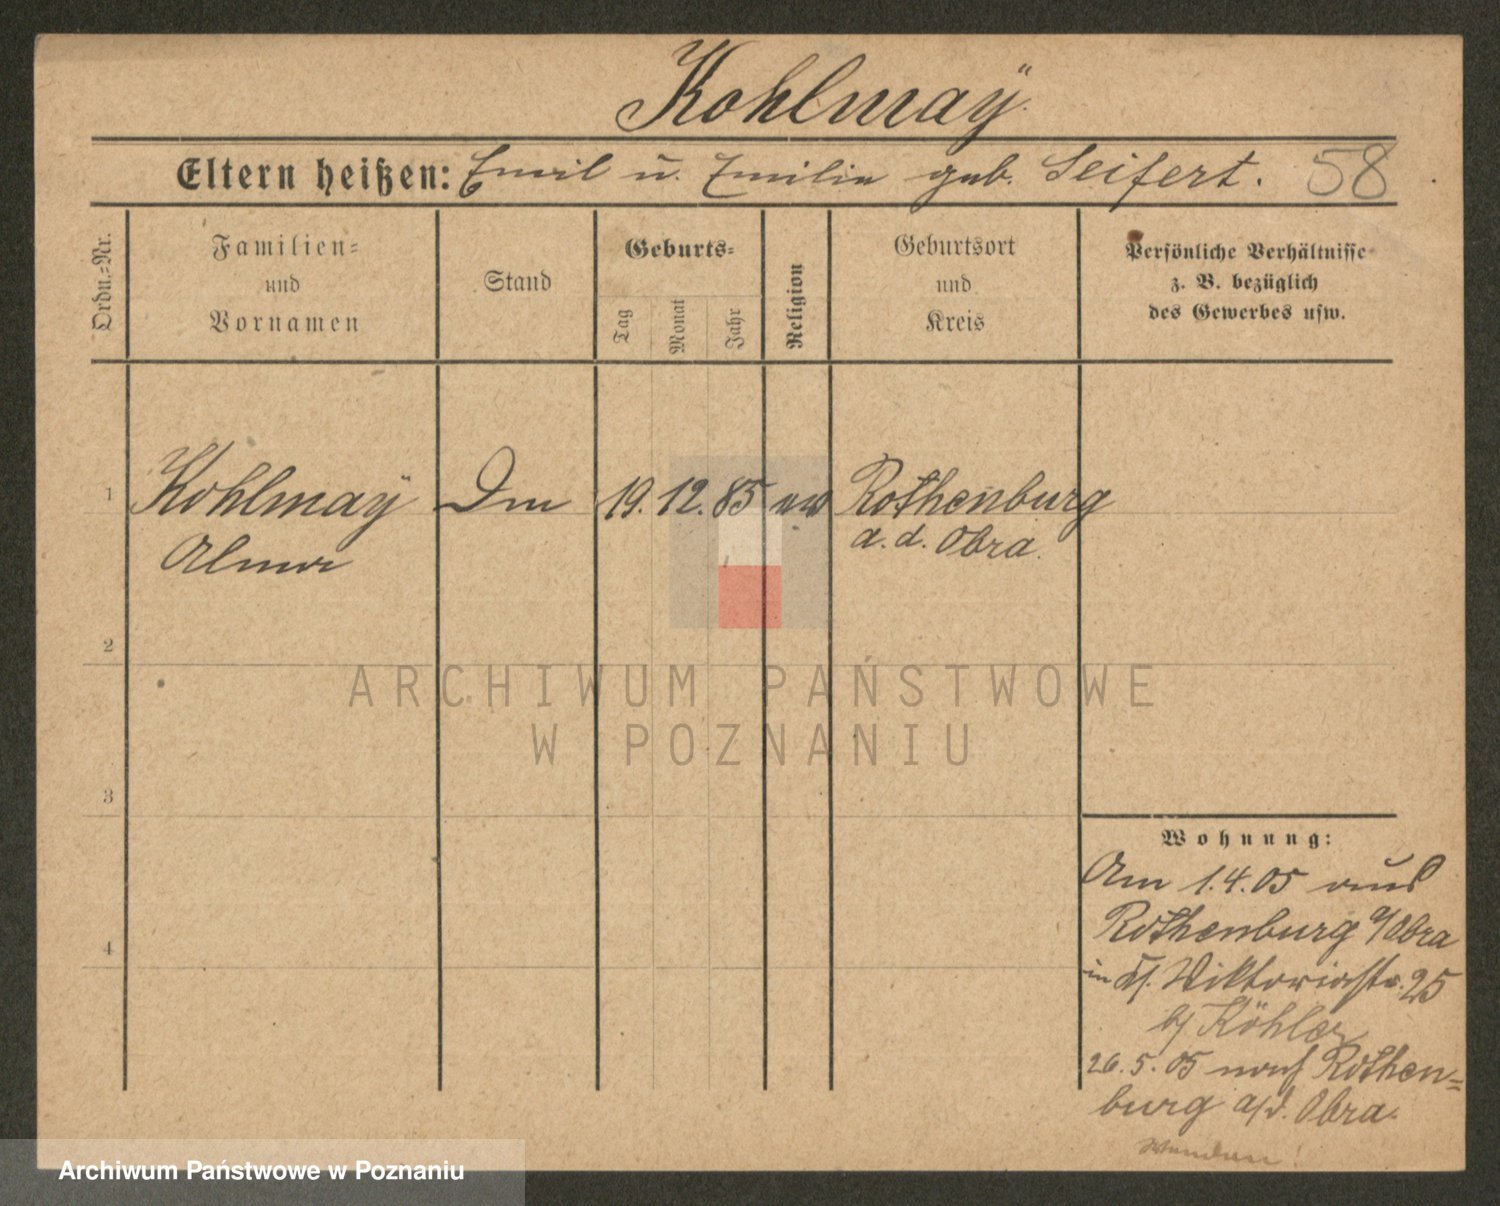 Kohlmaÿ
Eltern heißen: Emil u. Emilie geb. Seifert. 58
Ordn.=Nr.
Familien=
und
Vornamen
Stand
Geburts=
Tag
Monat
Jahr
Religion
Geburtsort
und
Kreis
Persönliche Verhältnisse
z. B. bezüglich
des Gewerbes usw.
1 Kohlmaÿ 19. 12. 85 ev Rothenburg
a. d. Obra.
2
3
4
Wohnung:
Am 1.4.05 aus
Rothenburg a/Obra
in Viktoriastr. 25
b/ Köhler
26. 5. 05 nach Rothen=
burg a/d. Obra.
ARCHIWUM PAŃSTWOWE
W POZNANIU
Archiwum Państwowe w Poznaniu